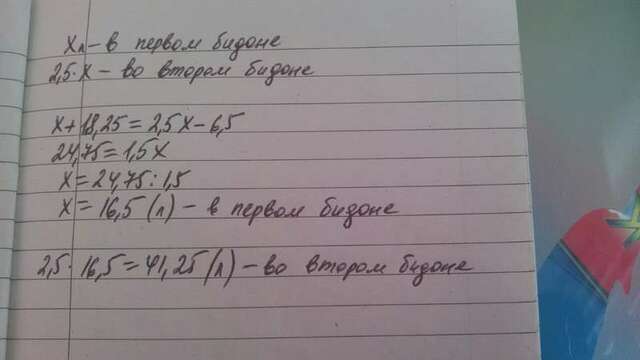 Xл – в первом бидоне
2,5·X – во втором бидоне
X+18,25=2,5X–6,5
24,75=1,5X
X=24,75:1,5
X=16,5(л) – в первом бидоне
2,5·16,5=41,25(л) – во втором бидоне